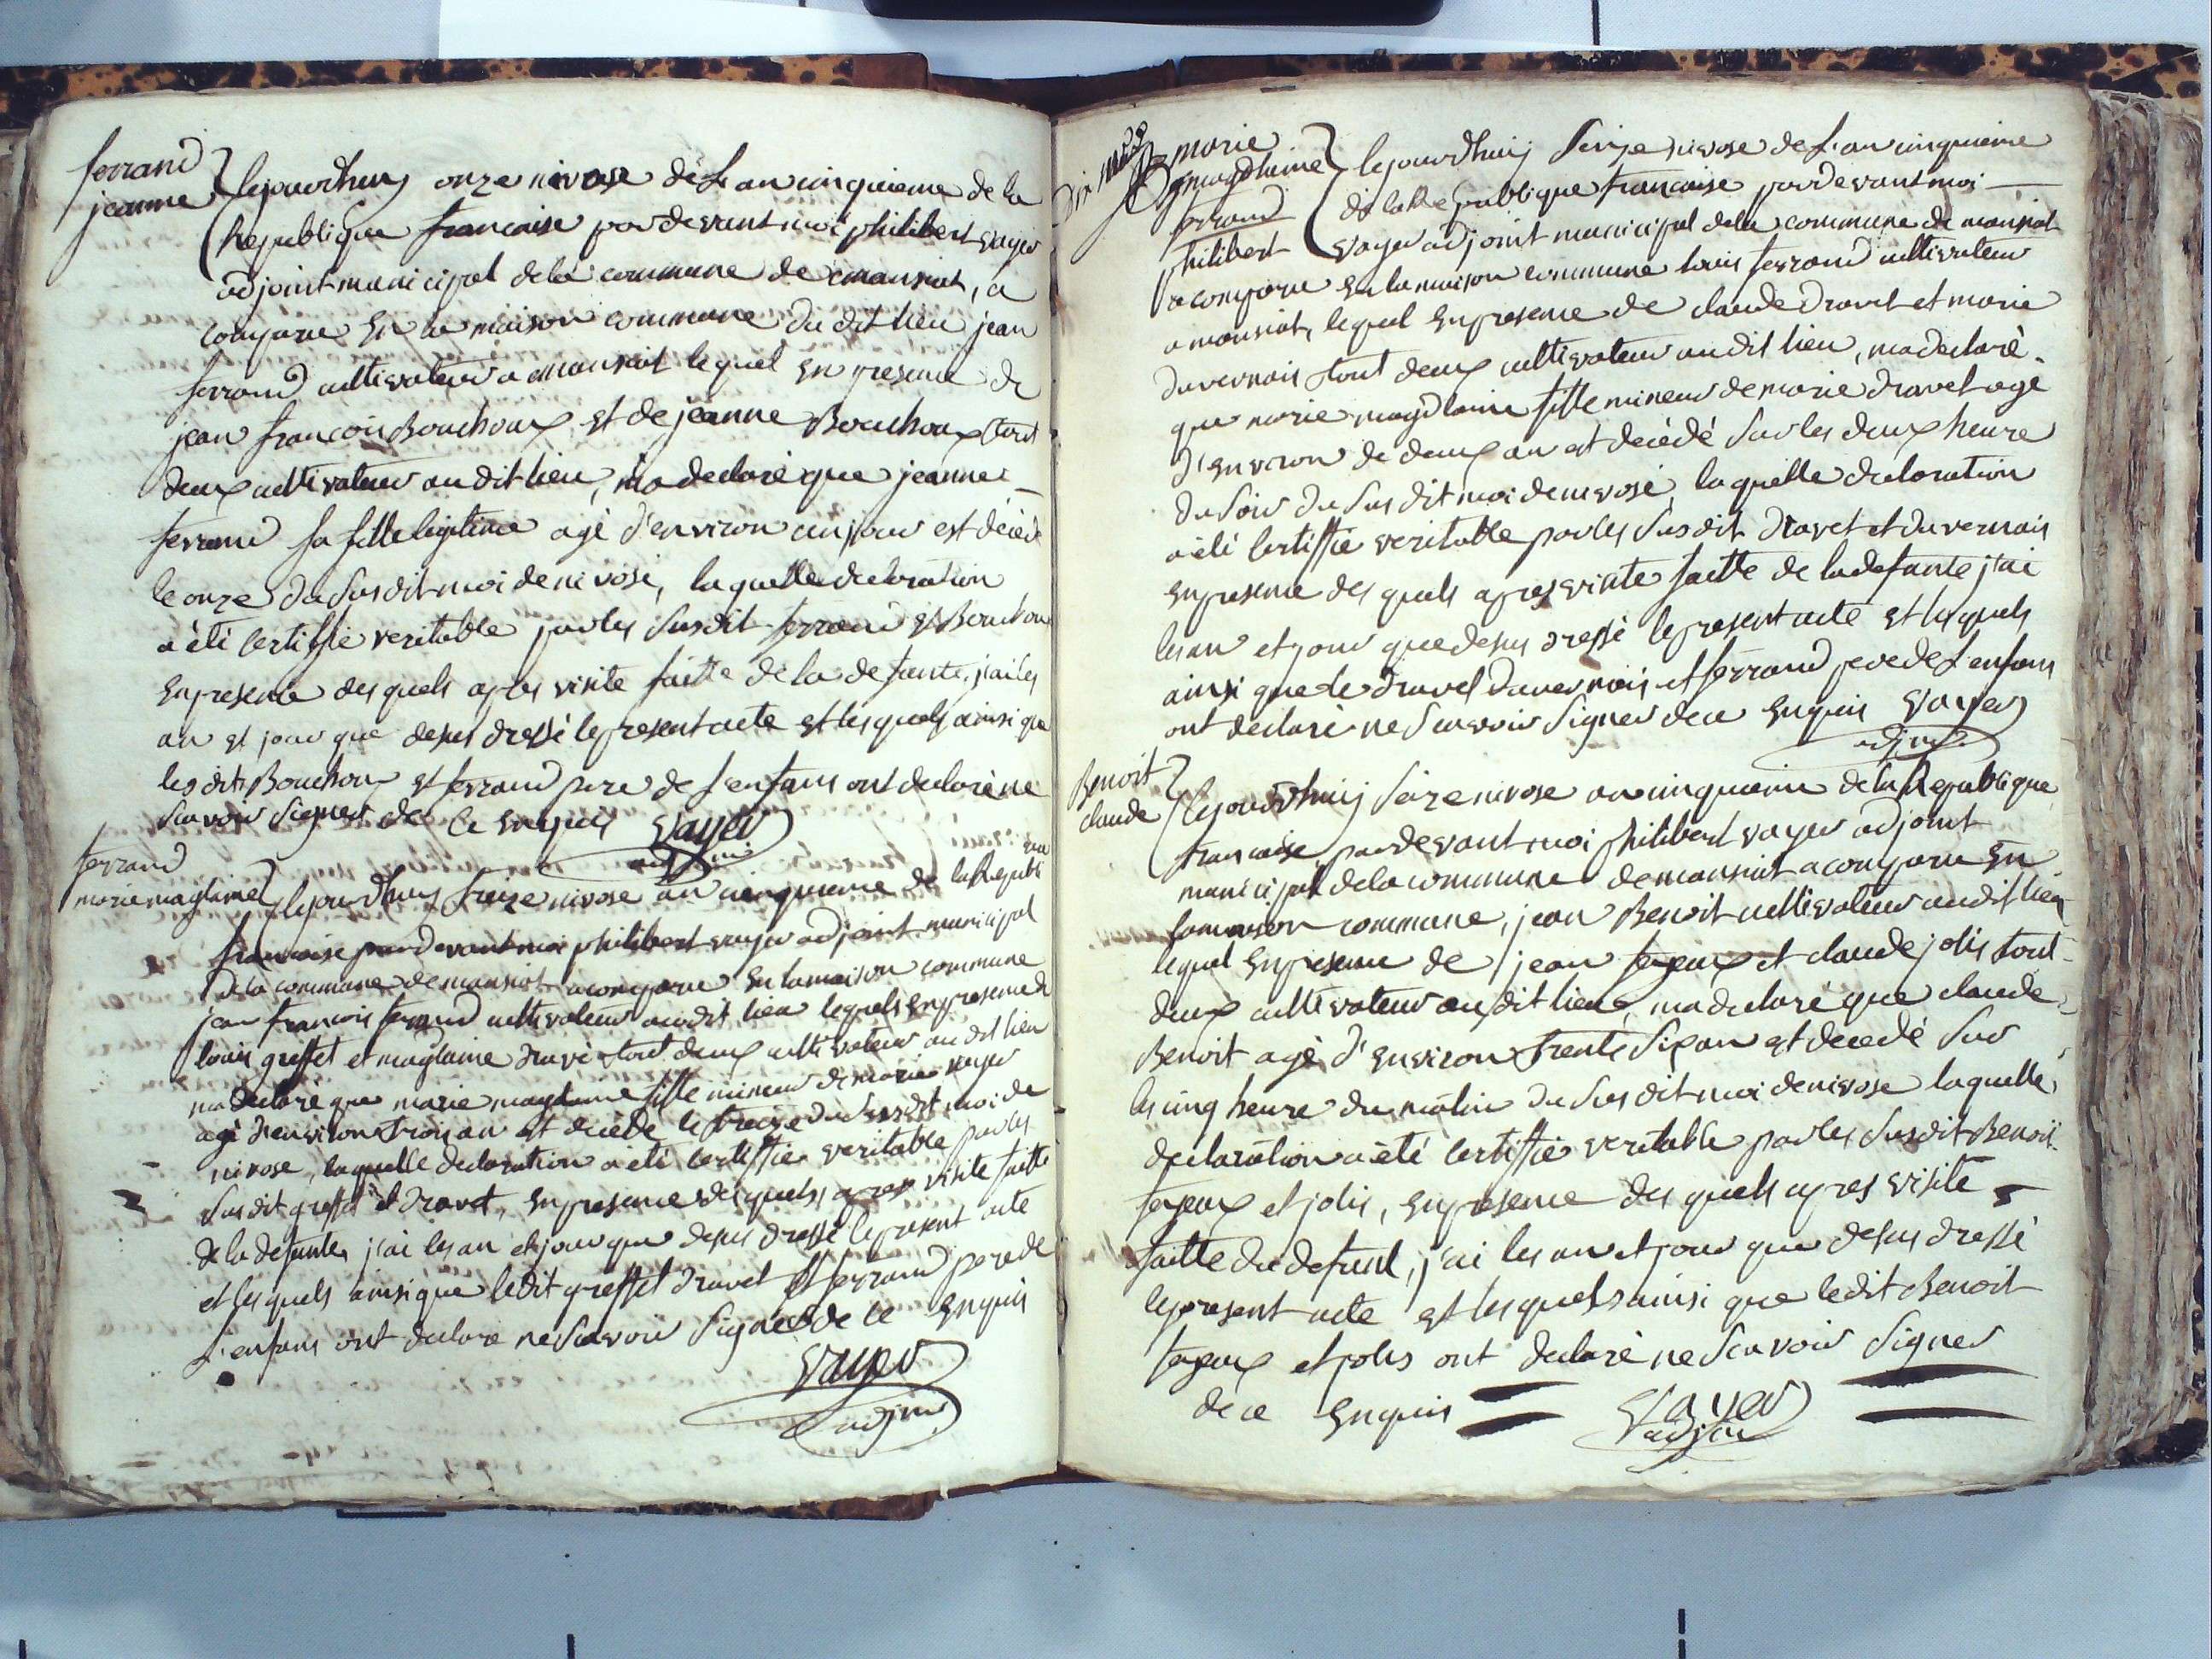 ferrand
jeanne
lejourdhuy onze nivose de L an cinquieme de la
Republique francaise pardevant moi philibert vayer
adjoint municipal dela commune de mansiat, a
comparu En la maison commune du dit lieu jean
ferrand cultivateur a mansiat lequel En presence de
jean francois Bouchoux et de jeanne Bouchoux tout
deux cultivateur au dit lieu, ma declaré que jeanne
ferrand sa fille legitime agé d'environ un jour est décédé
le onze du susdit moi de nivose, laquelle declaration
a été certiffié veritable par les susdit ferrand et Bouchoux
En presence des quels apres visite faitte de la defunte, j'ai les
an et jour que desus dressé le present acte et les quels ainsi que
les dit Bouchoux et ferrand pere de L enfans ont declaré ne
scavoir signer de ce Enquis vayer
adjoint
ferrand
marie maglaine
lejourdhuy treize nivose an cinquieme de la Republi
francaise pardevant moi philibert vayer adjoint municipal
de la commune de mansiat a comparu En la maison commune
jean francois ferrand cultivateur audit lieu lequels En presence de
louis greffet et maglaine dravé tout deux cultivateur au dit lieu
ma declaré que marie magdlaine fille mineur de marie vayer
agé d'environ trois an est décédé le treize du susdit moi de
nivose, laquelle declaration a eté certiffié veritable par les
susdit greffet et dravet, En presence des quels, apres visite faitte
de la defunte, j'ai les an et jour que desus dressé le present acte
et les quels ainsi que ledit greffet dravet et ferrand pere de
L'enfans ont declaré ne scavoir signer de ce Enquis
vayer
adjoint
marie
magdlaine
ferrand
lejourdhuij seize nivose de L an cinquieme
de la Republique francaise pardevant moi
philibert vayer adjoint municipal dela commune de mansiat
a comparu En la maison commune louis ferrand cultivateur
a mansiat, lequel En presence de claude dravet et marie
duvernais tout deux cultivateur au dit lieu, ma declaré
que marie magdlaine fille mineur de marie dravet agé
d'Environ de deux an est décédé sur les deux heure
du soir du sus dit moi de nivose, laquelle declaration
a été certiffié veritable par les susdit dravet et duvernais
En presence des quels apres visite faitte de la defunte j'ai
les an et jour que desus dressé le present acte et les quels
ainsi que le dravet duvernais et ferrand pere de L enfans
ont declaré ne scavoir signer de ce Enquis vayer
adjoint
Benoit
claude
lejourdhuij seize nivose an cinquieme de la Republique
francaise, pardevant moi philibert vayer adjoint
municipal dela commune de mansiat a comparu En
la maison commune, jean Benoit cultivateur audit lieu
lequel En presence de jean feyeux et claude jolis tout
deux cultivateur au dit lieu, ma declaré que claude
Benoit agé d'Environ trente six an est decedé sur
les cinq heure du matin du sus dit moi de nivose laquelle
declaration a été certiffié veritable par les susdit Benoit
feyeux et jolis, En presence des quels apres visite
faitte du defunt, j'ai les an et jour que desus dressé
le present acte et les quels ainsi que ledit Benoit
feyeux et jolis ont declaré ne scavoir signer
de ce Enquis vayer
adjoint